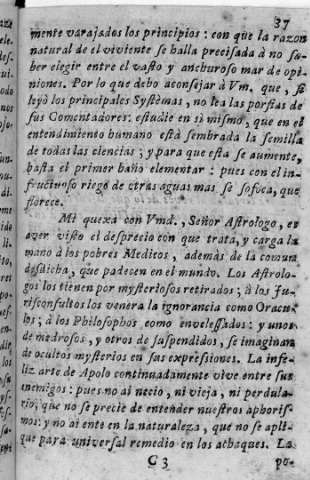 37
mente varajados los principios: con que la razon
natural de el viviente se halla precisada à no sa-
ber elegir entre el vasto y anchuroso mar de opi-
niones. Por lo que debo aconsejár à Vm. que, si
leyò los principales Systèmas, no lea las porfias de
sus Comentadores: estudie en sì mismo, que en el
entendimiento humano està sembrada la semilla
de todas las ciencias; y para que esta se aumente,
basta el primer baño elementar: pues con el in-
fructuoso riego de otras aguas mas se sofoca, que
florece.
Mi quexa con Vmd., Señor Astrologo, es
aver visto el desprecio con que trata, y carga la
mano à los pobres Medicos, ademàs de la comun
desdicha, que padecen en el mundo. Los Astrolo-
gos los tienen por mysteriosos retirados; à los Ju-
risconsultos los venèra la ignorancia como Oracu-
los; à los Philosophos como invelessados: y unos
de medrosos, y otros de suspendidos, se imaginan
de ocultos mysterios en sus expressiones. La infe-
liz arte de Apolo continuadamente vive entre sus
enemigos: pues no ai necio, ni vieja, ni perdula-
rio, que no se precie de entender nuestros aphoris-
mos: y no ai ente en la naturaleza, que no se apli-
que para universal remedio en los athaques. La
C 3
po-